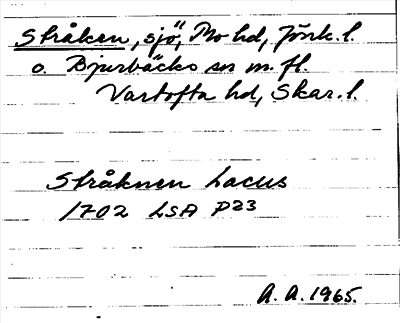 Stråken, sjö, Mo hd, Jönk. l.
o. Bjurbäcks sn m. fl.
Vartofta hd, Skar. l.
Stråknen Lacus
1702 LSA P23
A. A. 1965.